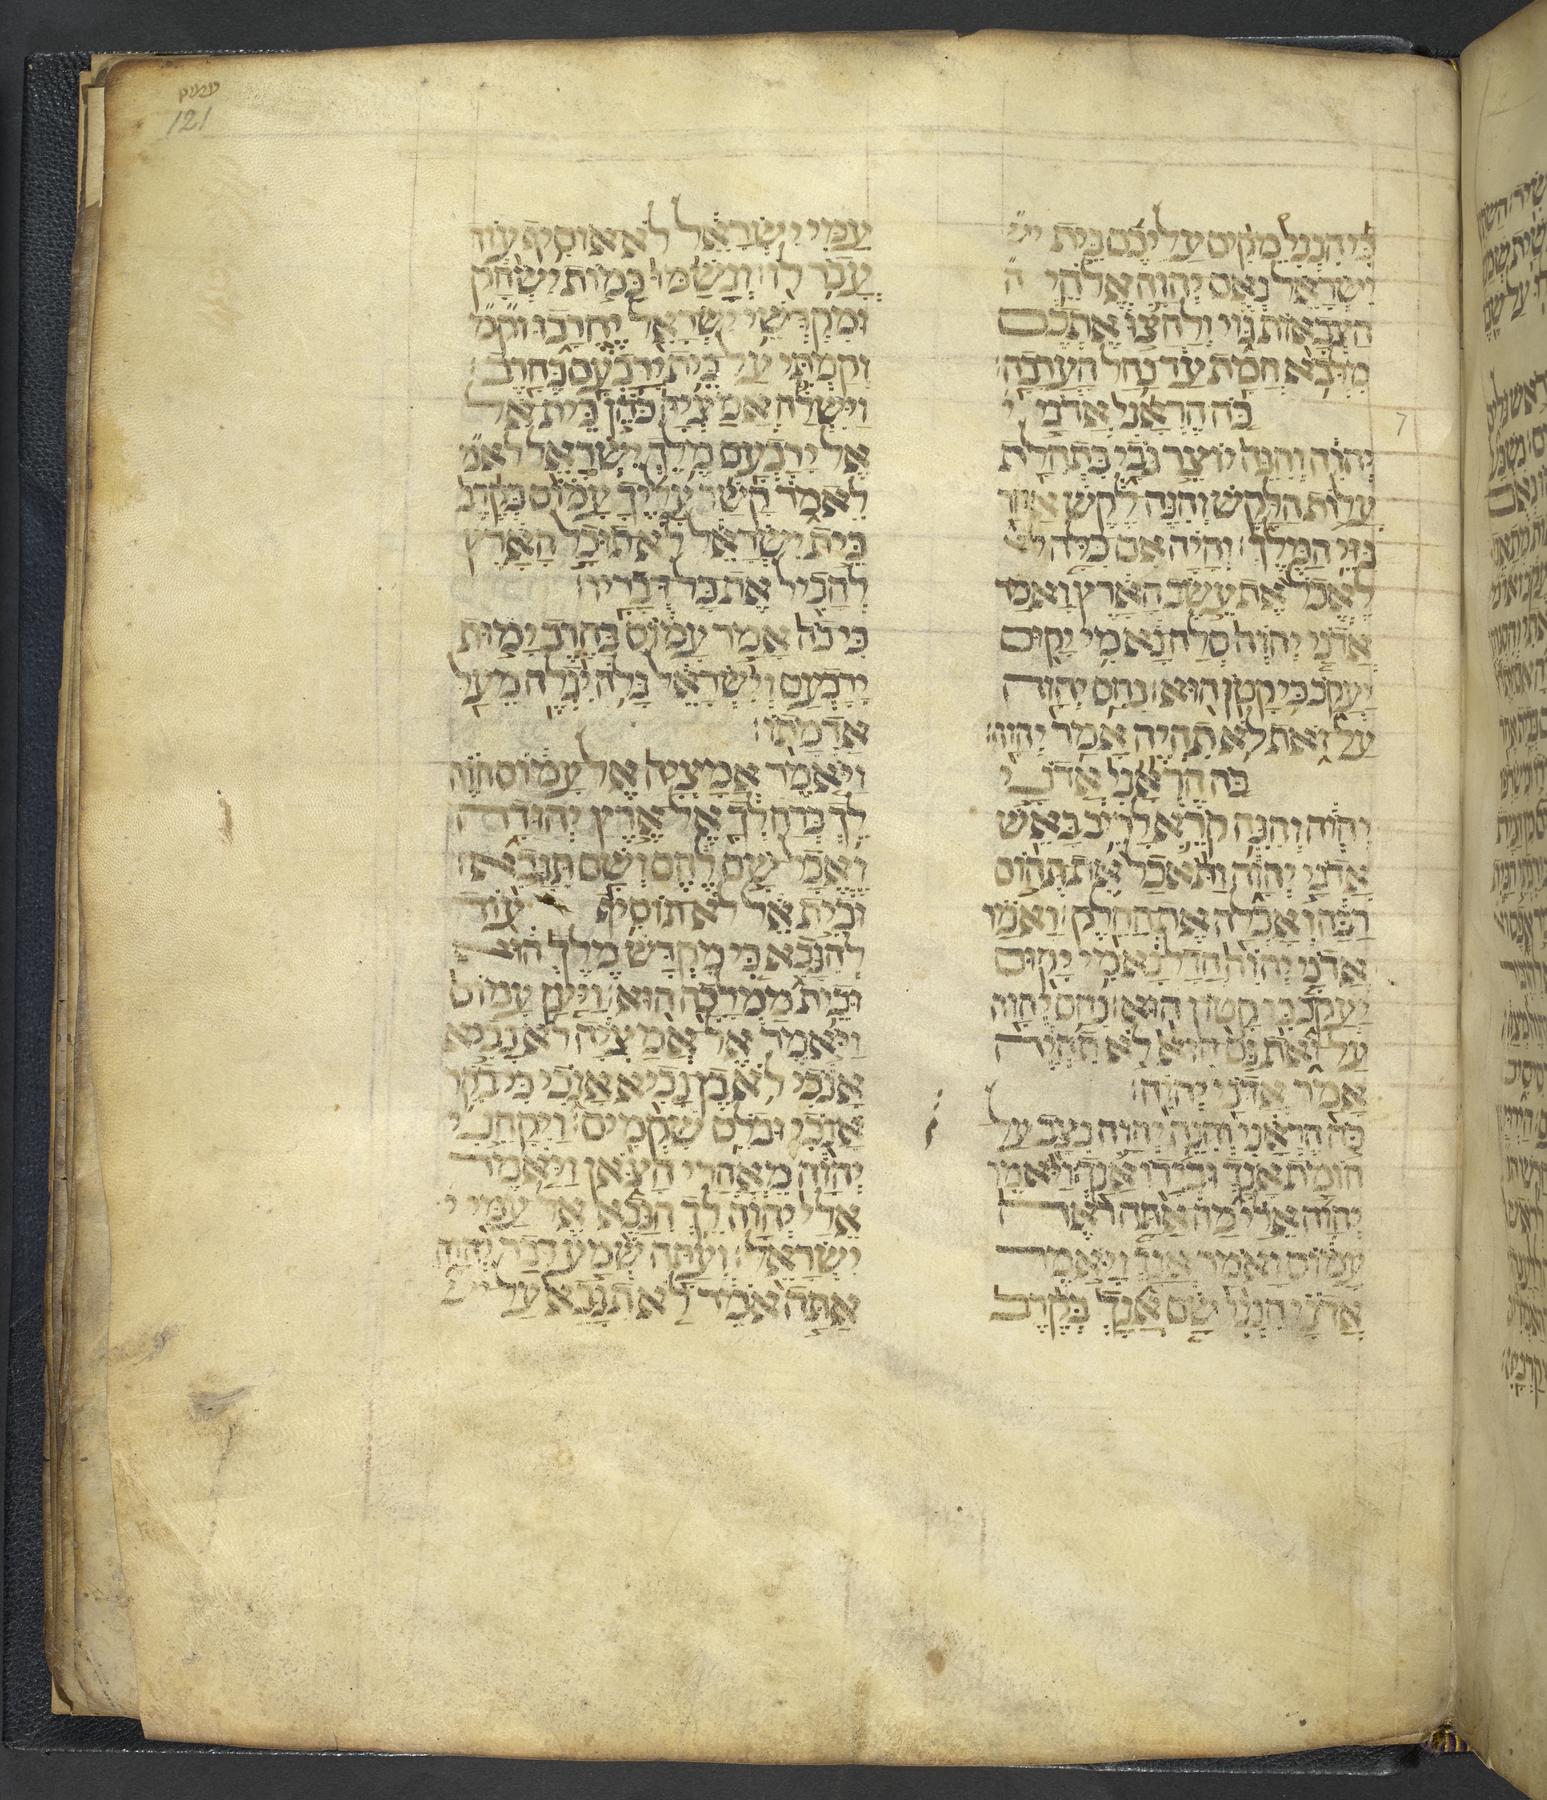 עמוס
121
7
כִּי הִנְנִי מֵקִים עֲלֵיכֶם בֵּית יש
יִשְׂרָאֵל נְאֻם יְהוָה אֱלֹהֵי ה
הַצְּבָאוֹת גּוֹי וְלָחֲצוּ אֶתְכֶם
מִלְּבוֹא חֲמָת עַד נַחַל הָעֲרָבָה׃
כֹּה הִרְאַנִי אֲדֹנָי י
יְהוִה וְהִנֵּה יוֹצֵר גֹּבַי בִּתְחִלַּת
עֲלוֹת הַלָּקֶשׁ וְהִנֵּה לֶקֶשׁ אַחַר
גִּזֵּי הַמֶּלֶךְ׃ וְהָיָה אִם כִּלָּה לא
לֶאֱכֹל אֶת עֵשֶׂב הָאָרֶץ וָאֹמַר
אֲדֹנָי יְהוִה סְלַח נָא מִי יָקוּם
יַעֲקֹב כִּי קָטֹן הוּא׃ נִחַם יְהוָה
עַל זֹאת לֹא תִהְיֶה אָמַר יְהוָה׃
כֹּה הִרְאַנִי אֲדֹנָי י
יְהוִה וְהִנֵּה קֹרֵא לָרִיב בָּאֵשׁ
אֲדֹנָי יְהוִה וַתֹּאכַל אֶת תְּהוֹם
רַבָּה וְאָכְלָה אֶת הַחֵלֶק׃ וָאֹמַר
אֲדֹנָי יְהוִה חֲדַל נָא מִי יָקוּם
יַעֲקֹב כִּי קָטוֹן הוּא׃ נִחַם יְהוָה
עַל זֹאת גַּם הִיא לֹא תִהְיֶה
אָמַר אֲדֹנָי יְהוִה׃
כֹּה הִרְאַנִי וְהִנֵּה יְהוָה נִצָּב עַל
חוֹמַת אֲנָךְ וּבְיָדוֹ אֲנָךְ׃ וַיֹּאמֶר
יְהוָה אֵלַי מָה אַתָּה רֹאֶה
עָמוֹס וָאֹמַר אֲנָךְ וַיֹּאמֶר
אֲדֹנָי הִנְנִי שָׂם אֲנָךְ בְּקֶרֶב
עַמִּי יִשְׂרָאֵל לֹא אוֹסִיף עוֹד
עֲבוֹר לוֹ׃ וְנָשַׁמּוּ בָּמוֹת יִשְׂחָק
וּמִקְדְּשֵׁי יִשְׂרָאֵל יֶחֱרָבוּ וקמ
וְקַמְתִּי עַל בֵּית יָרָבְעָם בֶּחָרֶב׃
וַיִּשְׁלַח אֲמַצְיָה כֹּהֵן בֵּית אֵל
אֶל יָרָבְעָם מֶלֶךְ יִשְׂרָאֵל לאמ
לֵאמֹר קָשַׁר עָלֶיךָ עָמוֹס בְּקֶרֶב
בֵּית יִשְׂרָאֵל לֹא תוּכַל הָאָרֶץ
לְהָכִיל אֶת כָּל דְּבָרָיו׃
כִּי כֹה אָמַר עָמוֹס בַּחֶרֶב יָמוּת
יָרָבְעָם וְיִשְׂרָאֵל גָּלֹה יִגְלֶה מֵעַל
אַדְמָתוֹ׃
וַיֹּאמֶר אֲמַצְיָה אֶל עָמוֹס חֹזֶה
לֵךְ בְּרַח לְךָ אֶל אֶרֶץ יְהוּדָה
וֶאֱכָל שָׁם לֶחֶם וְשָׁם תִּנָּבֵא׃
וּבֵית אֵל לֹא תוֹסִיף עוֹד
לְהִנָּבֵא כִּי מִקְדַּשׁ מֶלֶךְ הוּא
וּבֵית מַמְלָכָה הוּא׃ וַיַּעַן עָמוֹס
וַיֹּאמֶר אֶל אֲמַצְיָה לֹא נָבִיא
אָנֹכִי וְלֹא בֶן נָבִיא אָנֹכִי כִּי בוֹקֵר
אָנֹכִי וּבוֹלֵס שִׁקְמִים׃ וַיִּקָּחֵנִי
יְהוָה מֵאַחֲרֵי הַצֹּאן וַיֹּאמֶר
אֵלַי יְהוָה לֵךְ הִנָּבֵא אֶל עַמִּי י
יִשְׂרָאֵל׃ וְעַתָּה שְׁמַע דְּבַר יְהוָה
אַתָּה אֹמֵר לֹא תִנָּבֵא עַל יש